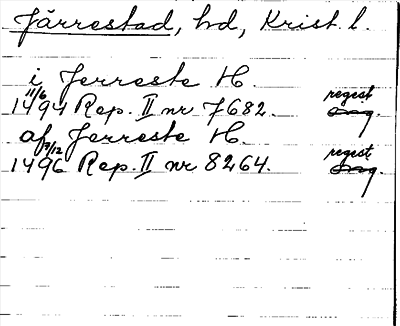 Järrestad, hd, Krist. l.
i Jerreste H.
11/6 1494 Rep. II nr 7682. regest. orig.
af Jerreste H.
7/12 1496 Rep. II nr 8264. regest. orig.